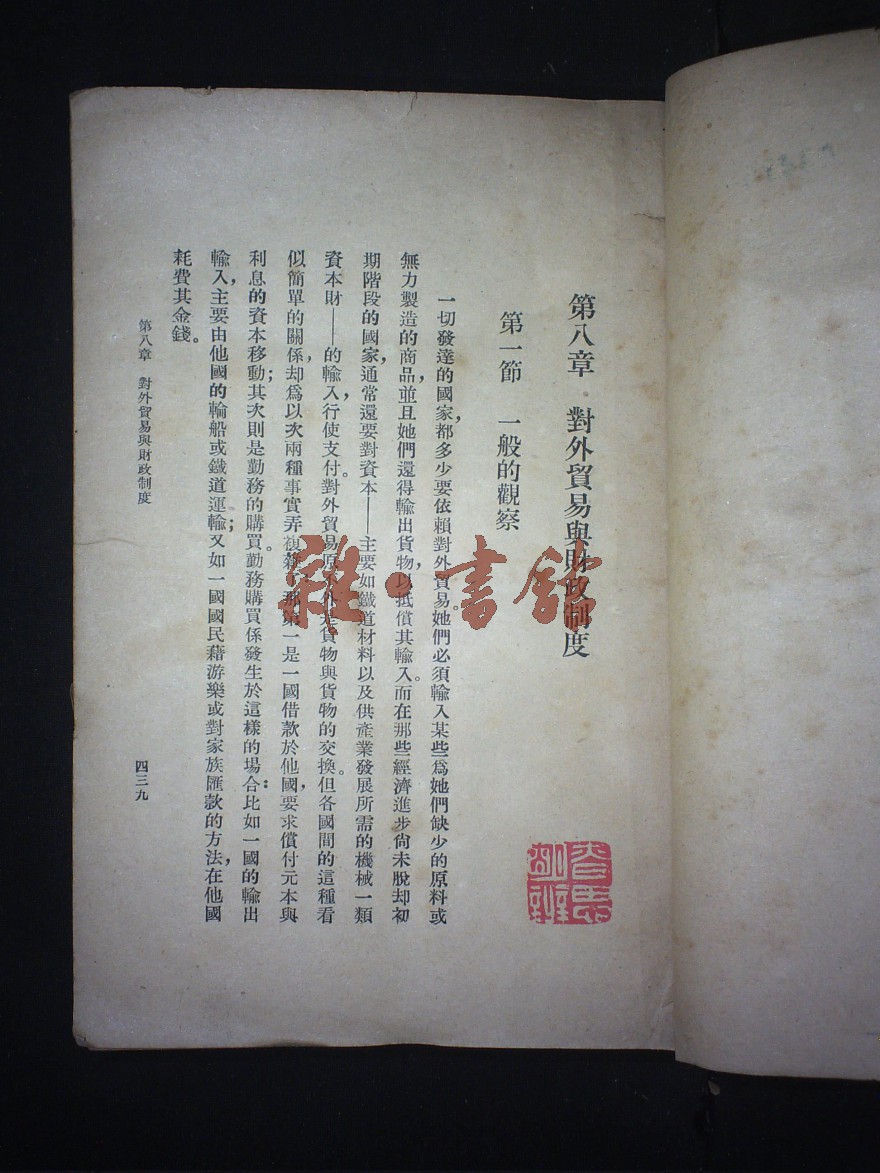 第八章 對外貿易與財政制度
第一節 一般的觀察
一切發達的國家，都多少要依賴對外貿易。她們必須輸入某些爲她們缺少的原料或
無力製造的商品，並且她們還得輸出貨物，以抵償其輸入。而在那些經濟進步尙未脫却初
期階段的國家，通常還要對資本——主要如鐵道材料以及供產業發展所需的機械一類
資本財——的輸入，行使支付。對外貿易原不外是貨物與貨物的交換。但各國間的這種看
似簡單的關係，却爲以次兩種事實弄複雜 那第一是一國借款於他國，要求償付元本與
利息的資本移動；其次則是勤務的購買。勤務購買係發生於這樣的場合：比如一國的輸出
輸入，主要由他國的輪船或鐵道運輸；又如一國國民藉游樂或對家族匯款的方法，在他國
耗費其金錢。
第八章 對外貿易與財政制度
四三九
雜·書館